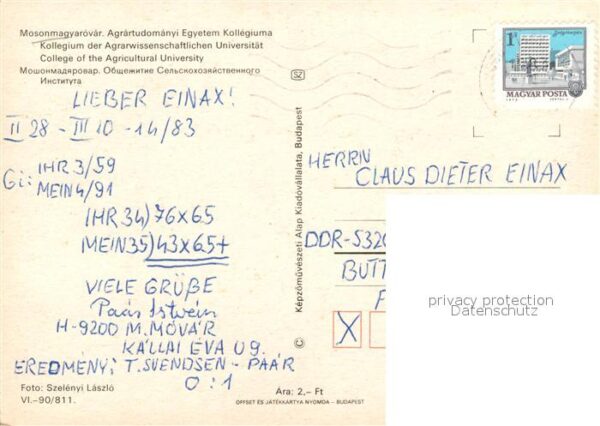 Mosonmagyaróvár. Agrártudományi Egyetem Kollégiuma
Kollegium der Agrarwissenschaftlichen Universität
College of the Agricultural University
Мошонмадяровар. Общежитие Сельскохозяйственного
Института
LIEBER EINAX!
II 28 - III 10 - 14/83
Gi: IHR 3/59
MEIN 4/91
IHR 34) 76x65
MEIN 35) 43x65+
VIELE GRÜßE
Paár István
H-9200 M. MÓVÁR
KÁLLAI ÉVA U 9.
EREDMÉNY: T. SVENDSEN - PAÁR
0:1
Foto: Szelényi László
VI.-90/811.
Ára: 2,- Ft
OFFSET ÉS JÁTÉKKÁRTYA NYOMDA - BUDAPEST
Képzőművészeti Alap Kiadóvállalata, Budapest
SZ
1Ft
MAGYAR POSTA
HERRN
CLAUS DIETER EINAX
DDR-5320
BUTT
privacy protection
Datenschutz
X